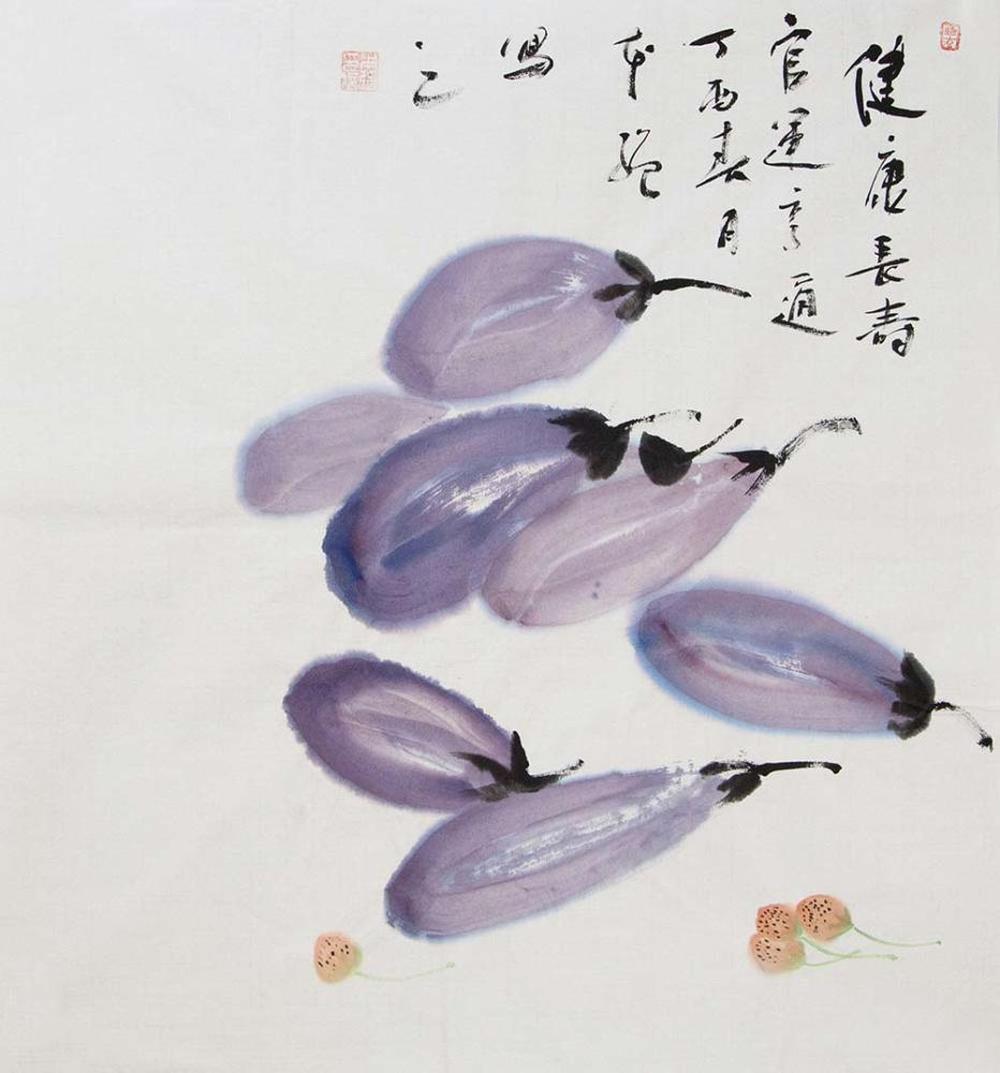 健康長壽
官運亨通
丁酉春月
本
寫